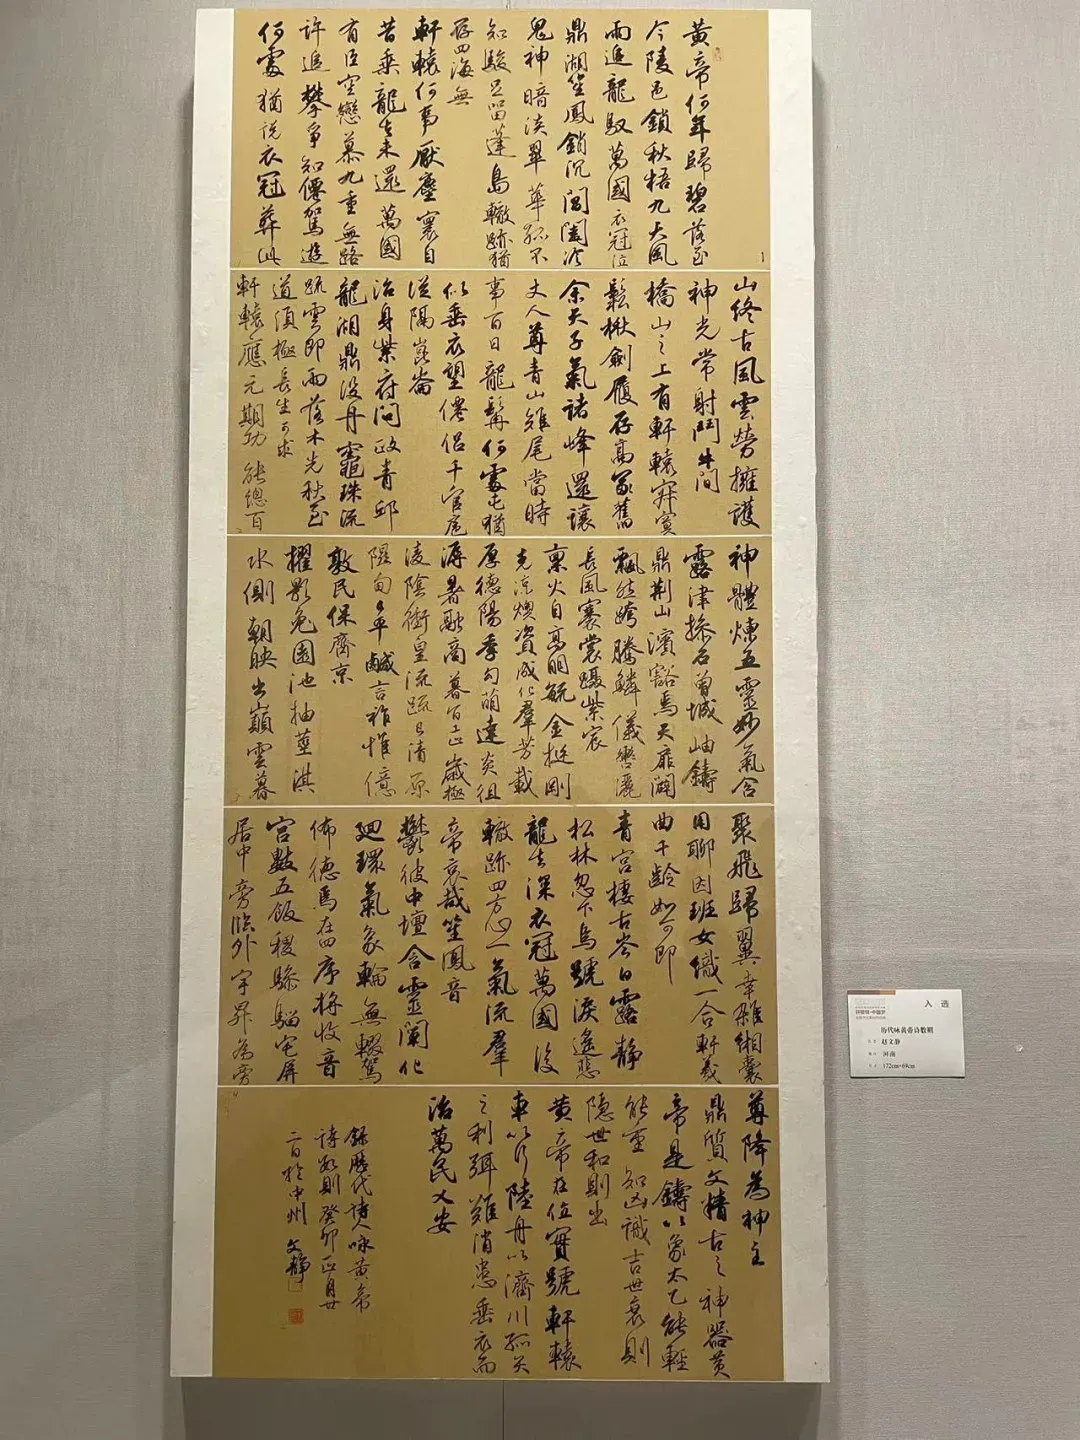 黃帝何年歸碧落至
今陵邑鎖秋梧九天風
雨追龍馭萬國衣冠泣
鼎湖笙鳳銷沉閶闔冷
鬼神暗淡翠華孤不
知駿足留蓬島轍跡猶
存四海無
軒轅何事厭塵寰自
昔乘龍去未還萬國
有臣空戀慕九重無路
許追攀爭知僊駕遊
何處猶說衣冠葬此
山終古風雲勞擁護
神光常射鬥牛間
橋山之上有軒轅寂寞
鬆楸劍履存高冢舊
余天子氣諸峰還讓
丈人尊青山雉尾當時
事百日龍髯何處屯猶
似垂衣望僊侶千官扈
從隔崑崙
治身紫府問政青邱
龍湖鼎沒丹竈珠流
疏雲即雨落木先秋至
道須極長生可求
軒轅應元期功能總百
神體煉五靈妙氣含
露津摻石曾城岫鑄
鼎荊山濱豁焉天扉闢
飄然跨騰鱗儀轡灑
長風褰裳躡紫宸
稟火自高明毓金挺剛
克涼燠資成化羣芳載
厚德陽季勾萌達炎徂
溽暑融商暮百工止歲極
淩陰衝皇流疏已清原
隰甸已平鹹言祚惟億
敦民保齊京
擢影兔園池抽莖淇
水側朝映出巔雲暮
聚飛歸翼幸雜緗囊
用聊因班女織一合軒羲
曲千齡如可即
青宮棲古岑白露靜
松林忽下烏號淚遙悲
龍去深衣冠萬國後
轍跡四方心一氣流羣
帝哀哉笙鳳音
鬱彼中壇含靈闡化
廻環氣象輪無輟駕
佈德焉在四序將收音
宮數五飯稷驂騧宅屏
居中旁臨外宇昇為帝
尊降為神主
鼎質文精古之神器黃
帝是鑄以象太乙能輕
能重知凶識吉世衰則
隱世和則出
黃帝在位實號軒轅
車以行陸舟以濟川弧矢
之利弭難消患垂衣而
治萬民乂安
錄歷代詩人咏黃帝
詩數則癸卯正月廿
二日於中州文靜
入选
历代咏黄帝诗数则
赵文静
河南
172cm×69cm